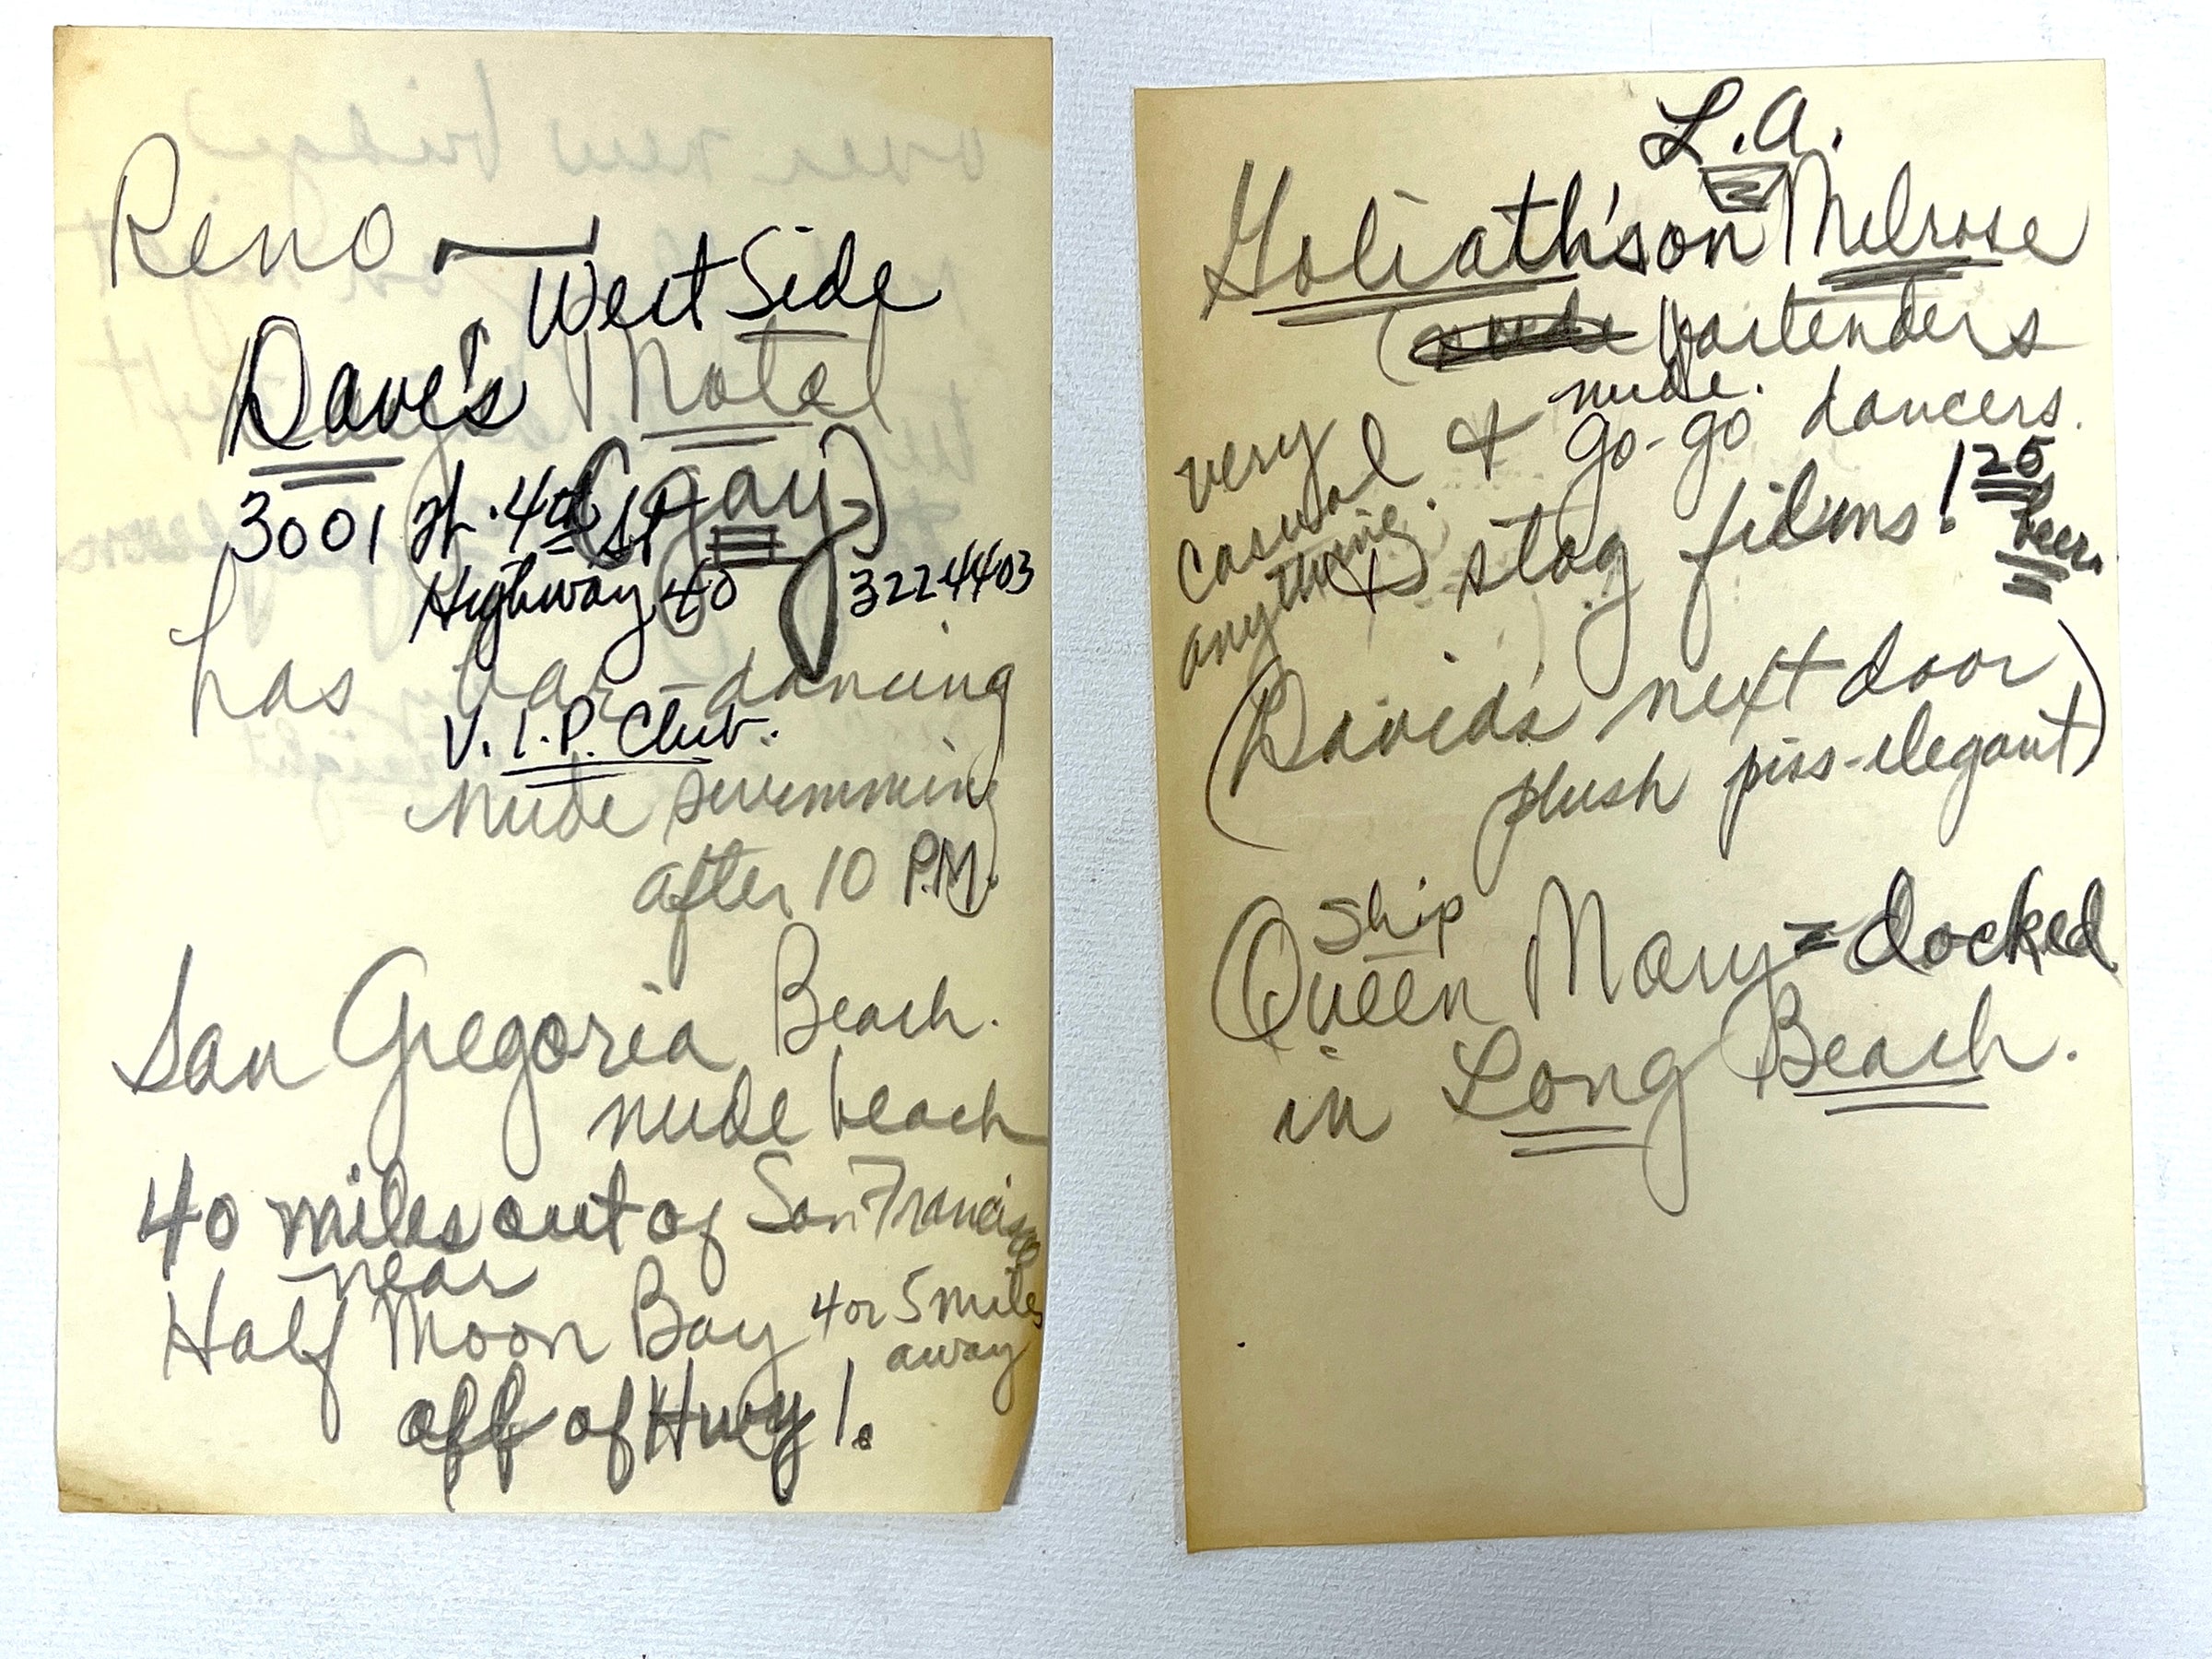 Reno
West Side
Dave's Motel
(gay)
3001 W. 4th St
Highway 40
322 4403
has bar - dancing
V.I.P. Club.
nude swimming
after 10 P.M.
San Gregoria Beach.
nude beach
40 miles out of San Francisco
near
Half Moon Bay 4 or 5 miles
away
off of Hwy 1.
L.A.
Goliath's on Melrose
(nude bartenders
nude.
& go-go dancers.
very
casual
anything.
& stag films!
25
beer
(David's next door
plush piss-elegant)
Ship
Queen Mary = docked
in Long Beach.
over new bridge